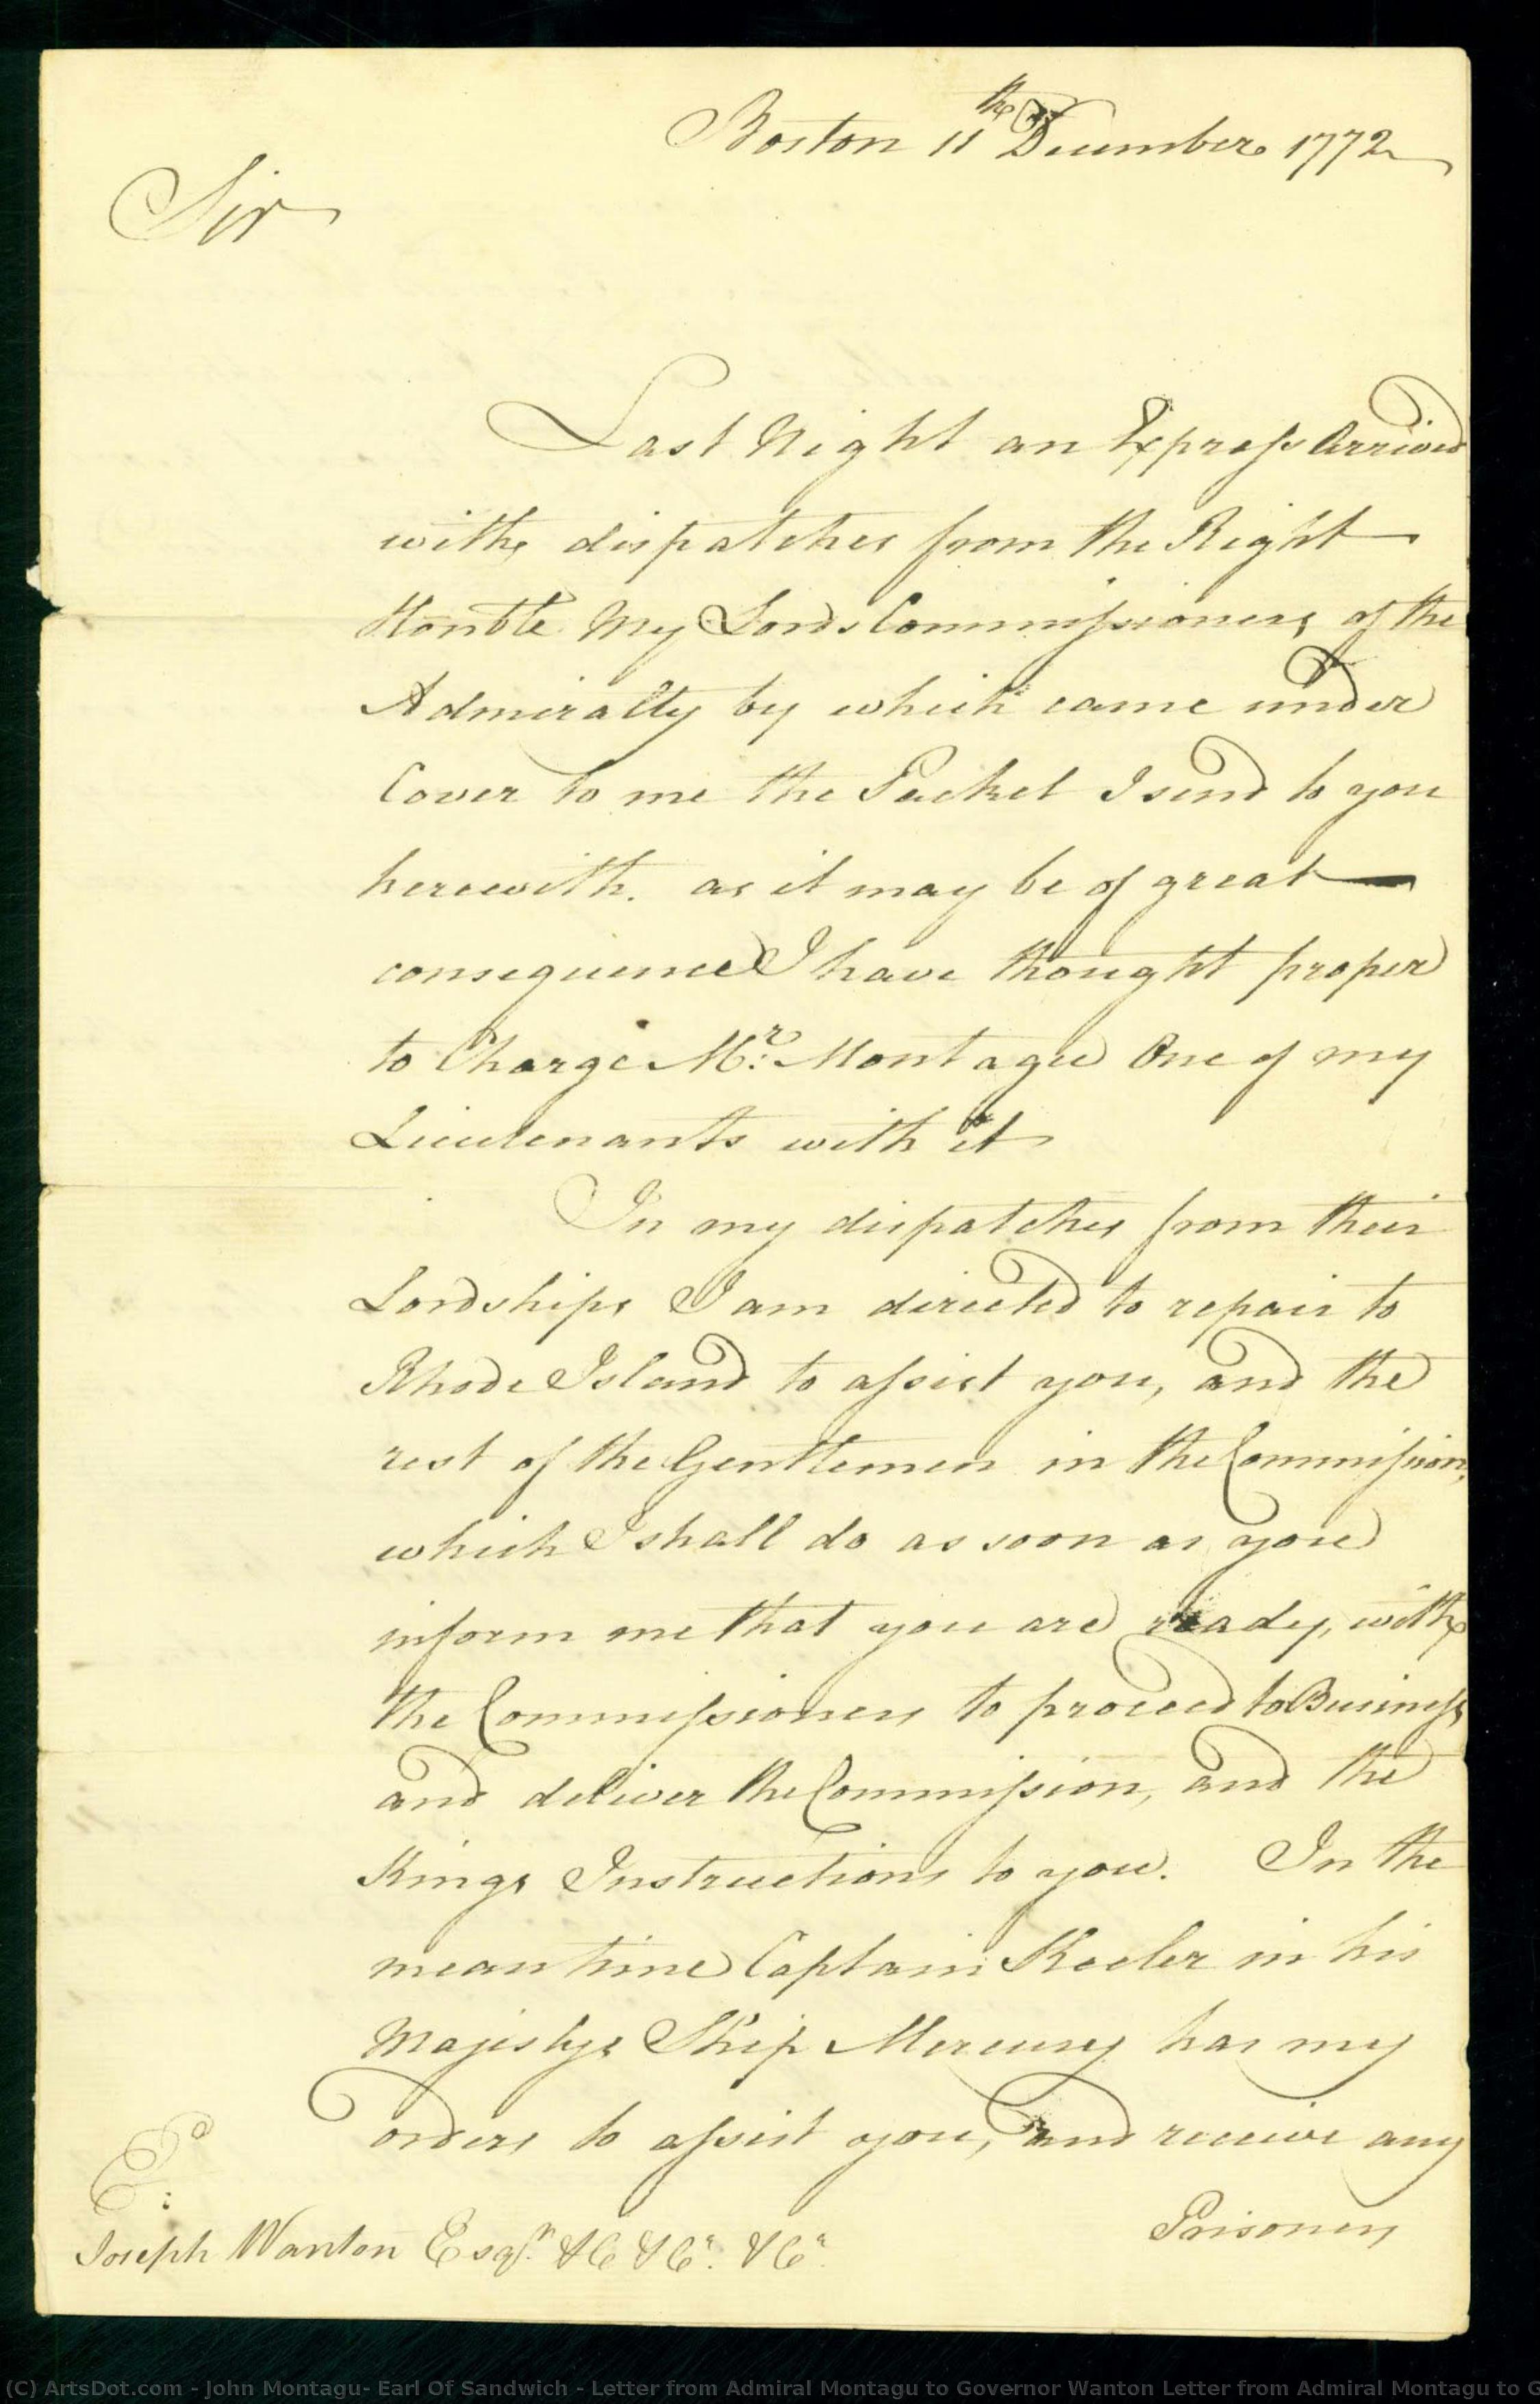 Boston 11th December 1772
Sir
Last Night an Express Arrived
with dispatches from the Right
Honble My Lords Commissioners of the
Admiralty by which came under
Cover to me the Packet I send to you
herewith. as it may be of great
consequence I have thought proper
to Charge Mr: Montague One of my
Lieutenants with it
In my dispatches from their
Lordships I am directed to repair to
Rhode Island to assist you, and the
rest of the Gentlemen in the Commission,
which I shall do as soon as you
inform me that you are ready, with
the Commissioners to proceed to Business
and deliver the Commission, and the
Kings Instructions to you. In the
mean time Captain Keeler in his
Majestys Ship Mercury has my
orders to assist you, and receive any
Prisoners
Joseph Wanton Esqr. &c &ca. &ca.
(C) ArtsDot.com - John Montagu- Earl Of Sandwich - Letter from Admiral Montagu to Governor Wanton Letter from Admiral Montagu to